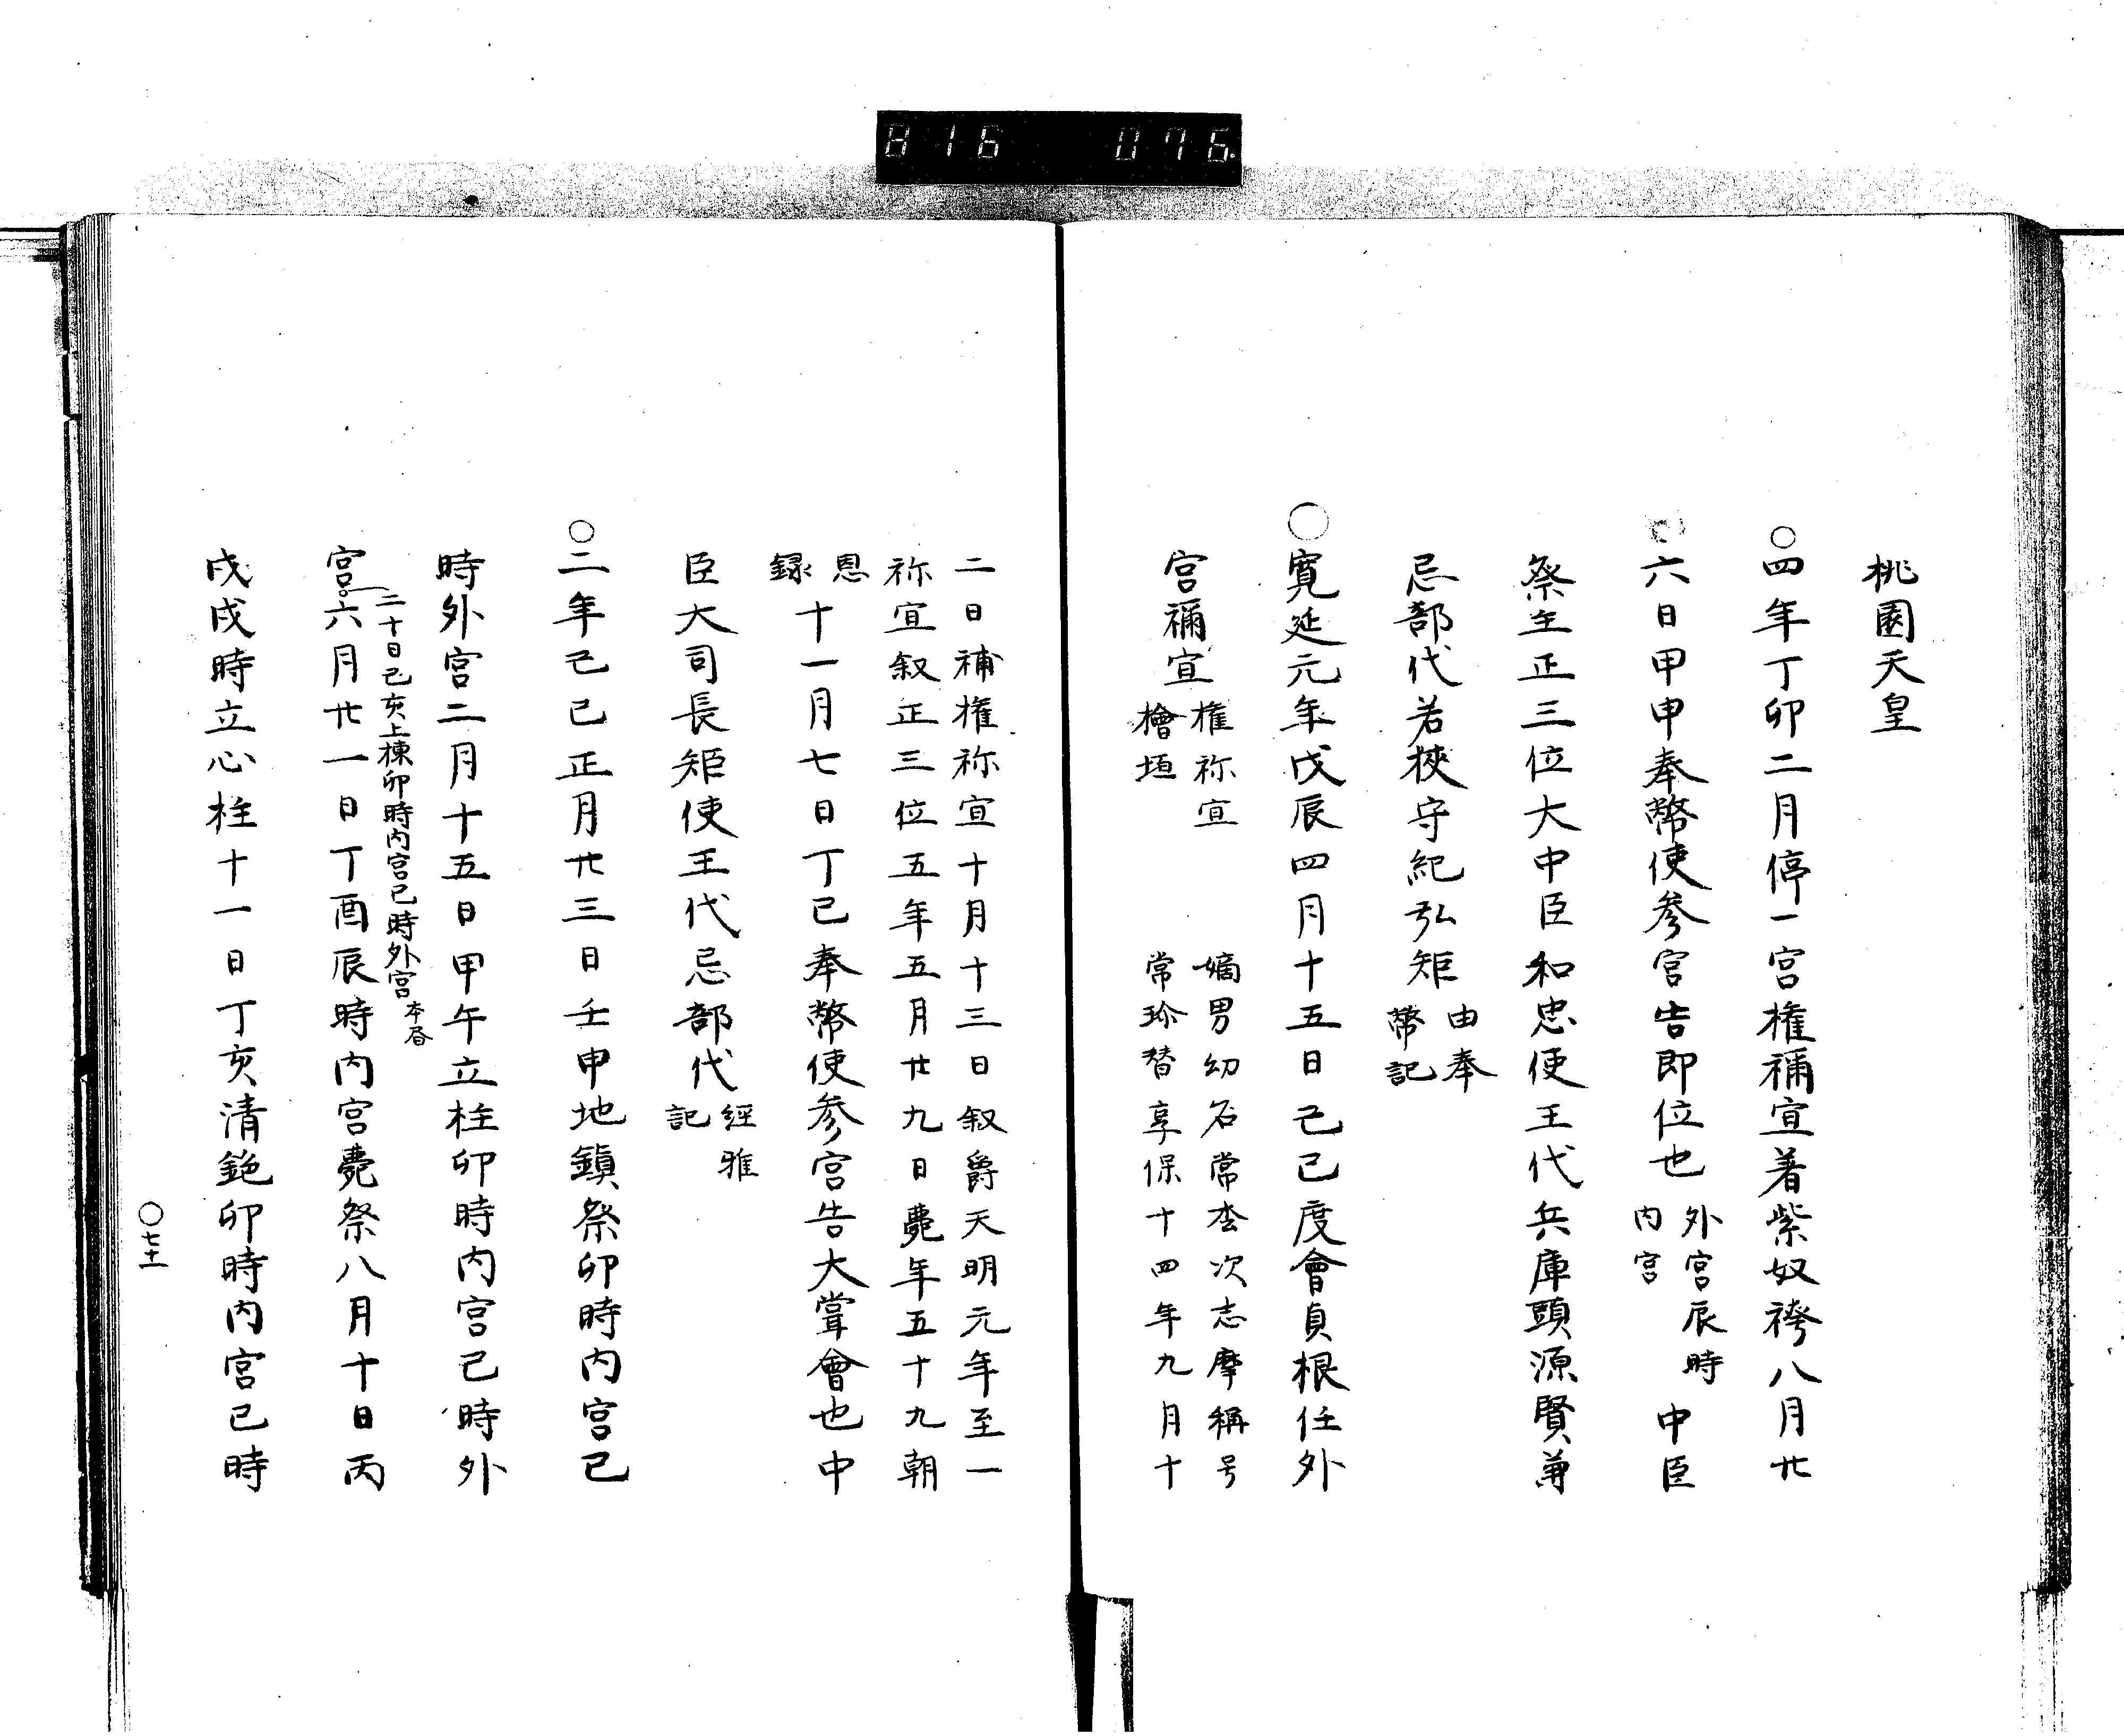 816 076.
桃園天皇
○四年丁卯二月停一宮権禰宣著紫奴袴八月廿
六日甲申奉幣使参宮告即位也
外宮辰時
内宮
中臣
祭主正三位大中臣和忠使王代兵庫頭源賢兼
忌部代若狭守紀弘矩
由奉
幣記
○寛延元年戊辰四月十五日己巳度會貞根任外
宮禰宣
権祢宣
檜垣
嫡男幼名常杢次志摩稱号
常珍替享保十四年九月十
二日補権祢宣十月十三日叙爵天明元年至一
祢宣叙正三位五年五月廿九日薨年五十九朝
恩
録
十一月七日丁巳奉幣使参宮告大甞會也中
臣大司長矩使王代忌部代
經雅
記
○二年己巳正月廿三日壬申地鎮祭卯時内宮巳
時外宮二月十五日甲午立柱卯時内宮巳時外
宮
二十日己亥上棟卯時内宮巳時外宮
本昏
六月廿一日丁酉辰時内宮甍祭八月十日丙
戌戌時立心柱十一日丁亥清鉋卯時内宮巳時
○七十一